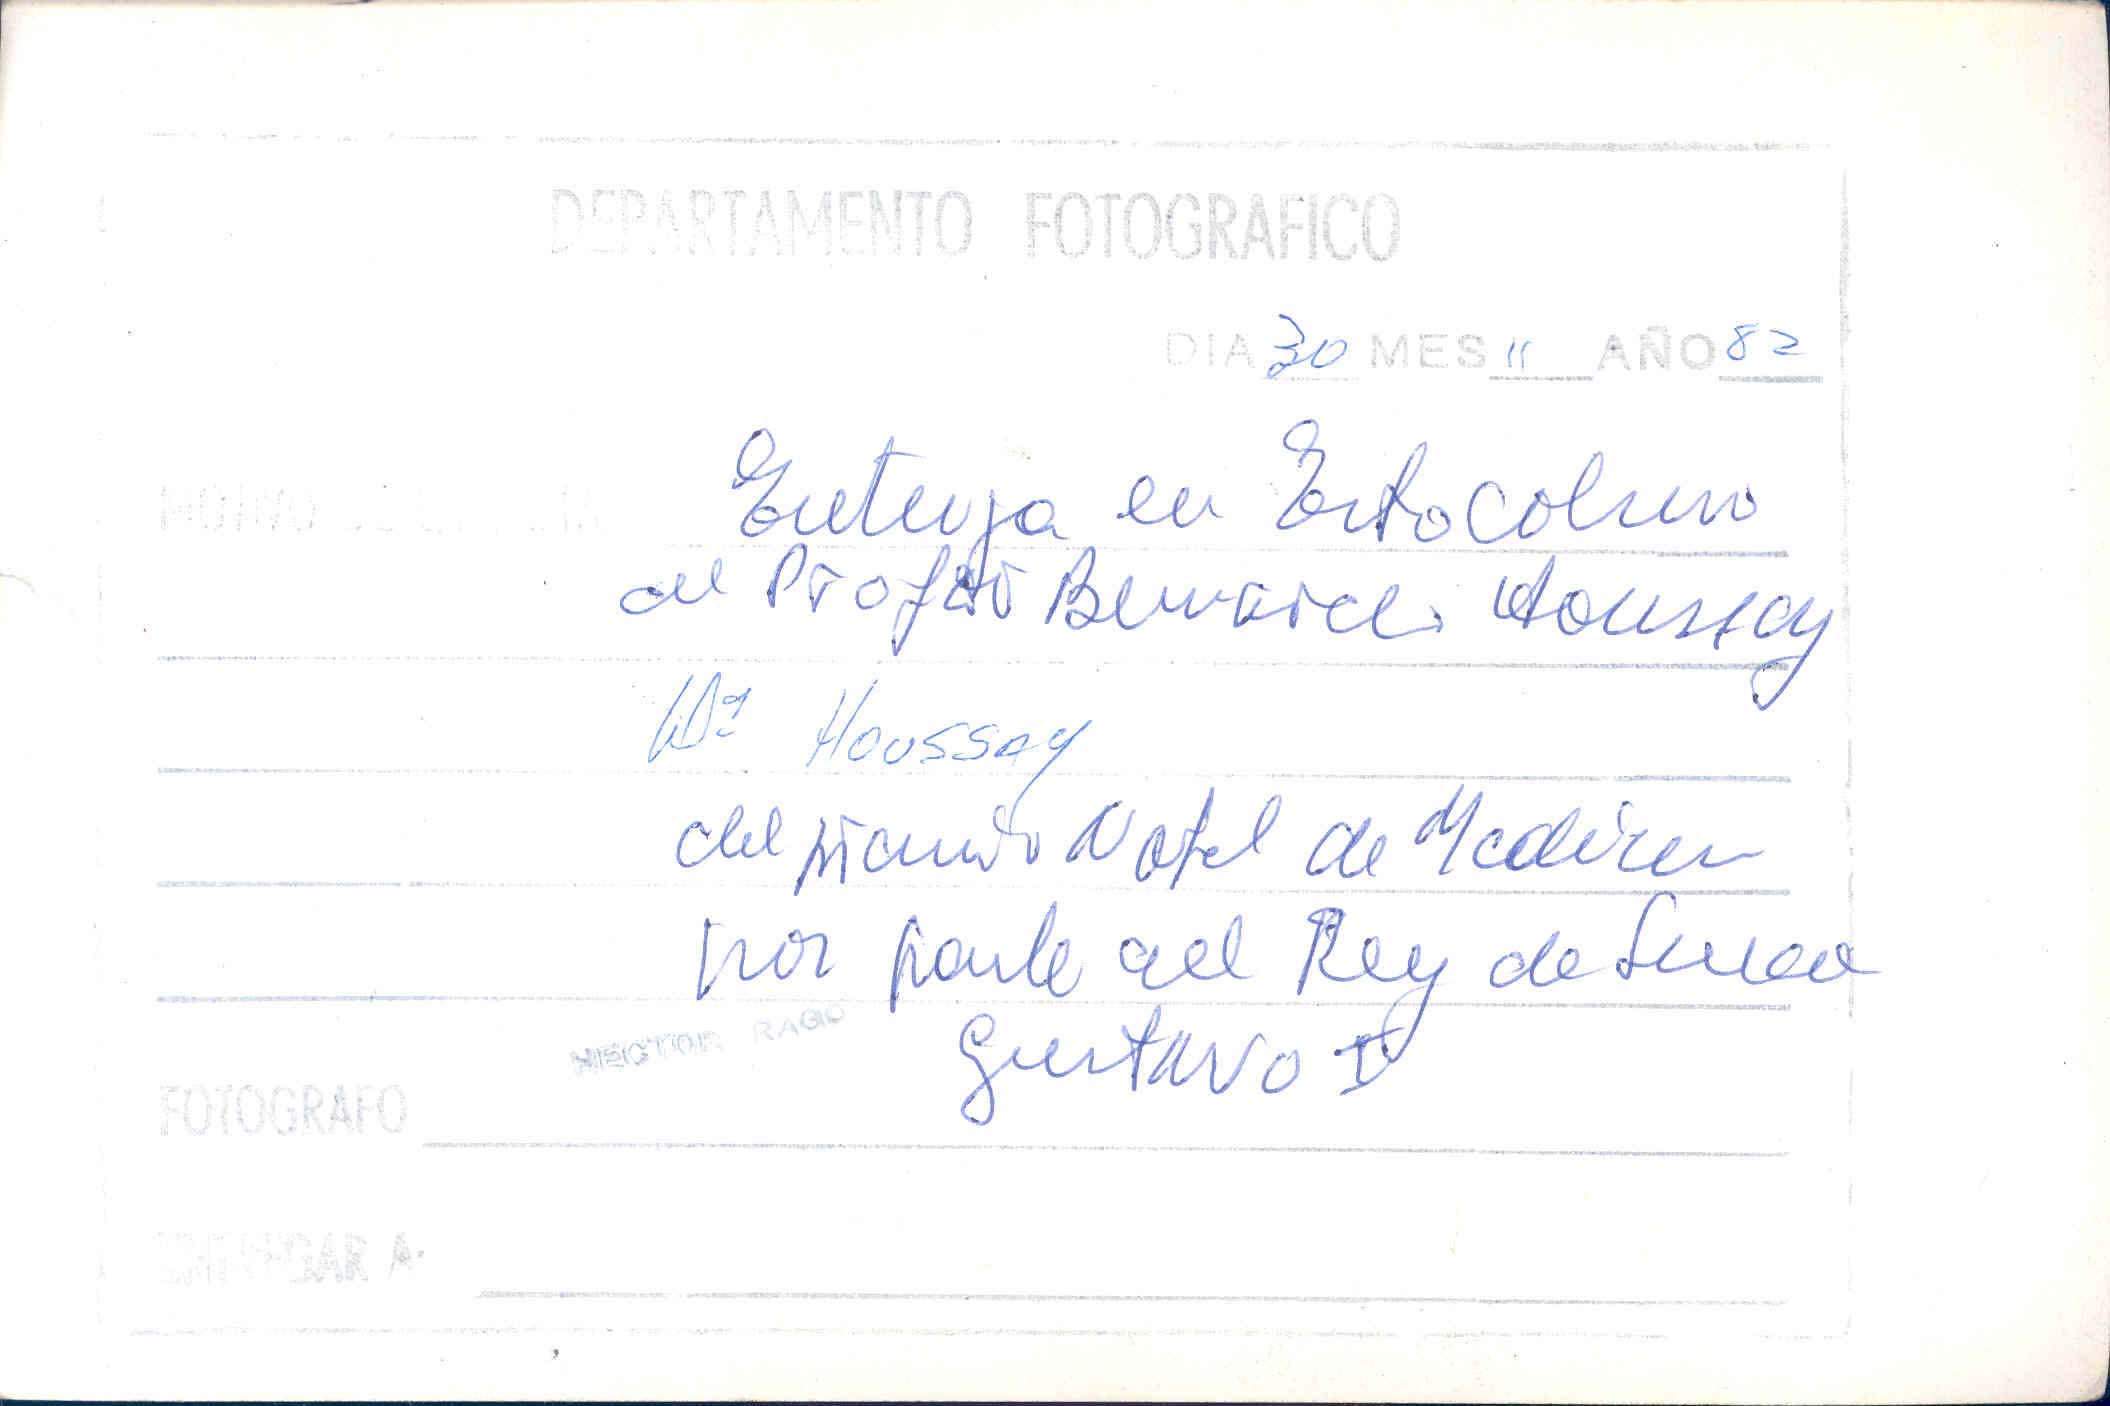 DEPARTAMENTO FOTOGRAFICO
DIA 30 MES 11 AÑO 82
MOTIVO
Entrega en Estocolmo
al Profesor Bernardo Houssay
Houssay
del premio Nobel de Medicina
por parte del Rey de Suecia
Gustavo V
HECTOR RAGO
FOTOGRAFO
ENTREGAR A